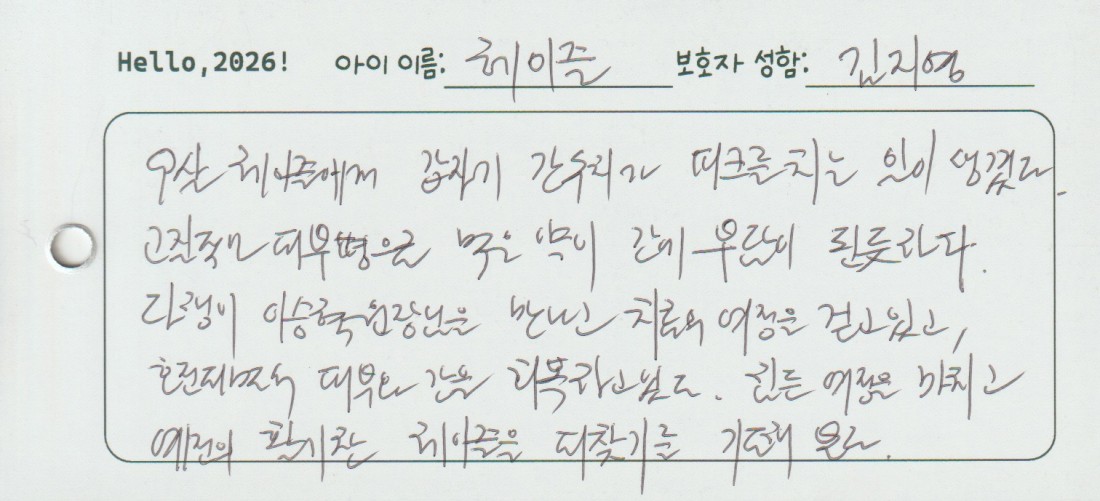 Hello,2026! 아이 이름: 헤이즐 보호자 성함: 김지영
9살 헤이즐에게 갑자기 간수치가 피크를 치는 일이 생겼다.
고질적인 피부병으로 먹은 약이 간에 부담이 된듯하다.
다행이 이승현원장님을 만나고 치료의 여정을 걷고있고,
호전되면서 피부와 간을 회복하고있다. 힘든 여정을 마치고
예전의 활기찬 헤이즐을 되찾기를 기대해 본다.